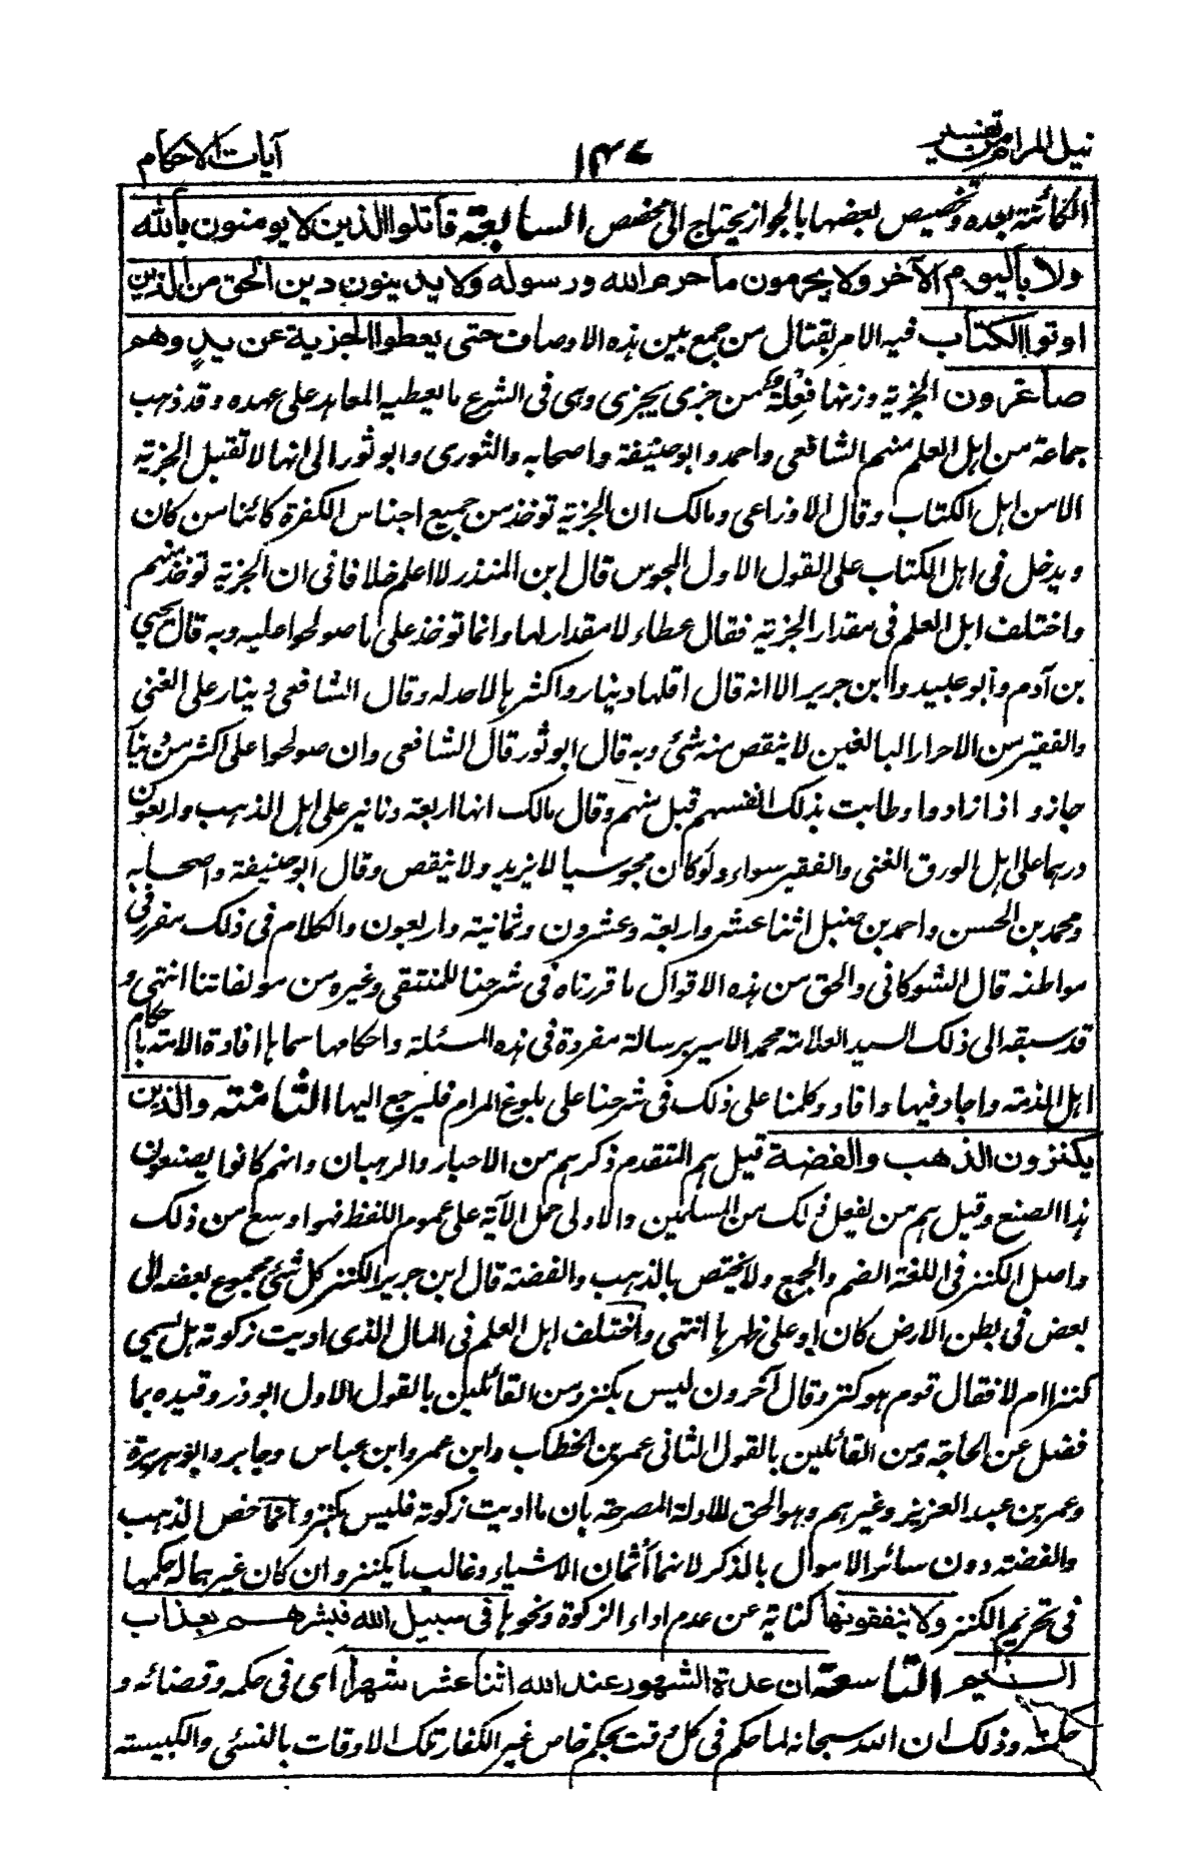 نيل المرام من تفسير
١٤٧
آيات الاحكام
الكائنة بعده وتخصيص بعضها بالجواز يحتاج الى مخصص السابعة قاتلوا الذين لا يومنون بالله
ولا باليوم الآخر ولا يحرمون ما حرم الله ورسوله ولا يدينون دين الحق من الذين
اوتوا الكتاب فيه الامر بقتال من جمع بين هذه الاوصاف حتى يعطوا الجزية عن يد وهم
صاغرون الجزية وزنها فعلة من جزى يجزى وهى فى الشرع ما يعطيه المعاهد على عهده وقد ذهب
جماعة من اهل العلم منهم الشافعى واحمد وابو حنيفة واصحابه والثورى وابو ثور الى انها لا تقبل الجزية
الا من اهل الكتاب وقال الاوزاعى ومالك ان الجزية توخذ من جميع اجناس الكفرة كائنا من كان
ويدخل فى اهل الكتاب على القول الاول المجوس قال ابن المنذر لا اعلم خلافا فى ان الجزية توخذ منهم
واختلف اهل العلم فى مقدار الجزية فقال عطاء لا مقدار لها وانما توخذ على ما صولحوا عليه وبه قال يحيي
بن آدم وابو عبيد وابن جرير الا انه قال اقلها دينار واكثرها لا حد له وقال الشافعى دينار على الغنى
والفقير من الاحرار البالغين لا ينقص منه شئ وبه قال ابو ثور قال الشافعى وان صولحوا على اكثر من دينار
جاز واذا زادوا وطابت بذلك انفسهم قبل منهم وقال مالك انها اربعة دنانير على اهل الذهب واربعون
درهما على اهل الورق الغنى والفقير سواء ولو كان مجوسيا لا يزيد ولا ينقص وقال ابو حنيفة واصحابه
ومحمد بن الحسن واحمد بن حنبل اثنا عشر واربعة وعشرون وثمانية واربعون والكلام فى ذلك مقرر فى
مواطنه قال الشوكانى والحق من هذه الاقوال ما قررناه فى شرحنا للمنتقى وغيره من مولفاتنا انتهى و
قد سبقه الى ذلك السيد العلامة محمد الامير برسالة مفردة فى هذه المسئلة واحكامها سماها افادة الامة باحكام
اهل الذمة واجاد فيها وافاد وكلمنا على ذلك فى شرحنا على بلوغ المرام فليرجع اليها الثامنة والذين
يكنزون الذهب والفضة قيل هم المتقدم ذكرهم من الاحبار والرهبان وانهم كانوا يصنعون
هذا الصنع وقيل هم من يفعل ذلك من المسلمين والاولى حمل الآية على عموم اللفظ فهو اوسع من ذلك
واصل الكنز فى اللغة الضم والجمع ولا يختص بالذهب والفضة قال ابن جرير الكنز كل شئ مجموع بعضه الى
بعض فى بطن الارض كان او على ظهرها انتهى واختلف اهل العلم فى المال الذى اديت زكوته هل يسمى
كنزا ام لا فقال قوم هو كنز وقال آخرون ليس بكنز ومن القائلين بالقول الاول ابو ذر وقيده بما
فضل عن الحاجة ومن القائلين بالقول الثانى عمر بن الخطاب وابن عمر وابن عباس وجابر وابو هريرة
وعمر بن عبد العزيز وغيرهم وهو الحق للادلة المصرحة بان ما اديت زكوته فليس بكنز وانما خص الذهب
والفضة دون سائر الاموال بالذكر لانهما أثمان الاشياء وغالب ما يكنز وان كان غيرهما له حكمها
فى تحريم الكنز ولا ينفقونها كناية عن عدم اداء الزكوة ونحوها فى سبيل الله فبشرهم بعذاب
اليم التاسعة ان عدة الشهور عند الله اثنا عشر شهرا اى فى حكمه وقضائه و
حكمته وذلك ان الله سبحانه لما حكم فى كل وقت بحكم خاص غير الكفار تلك الاوقات بالنسئى والكبيسة